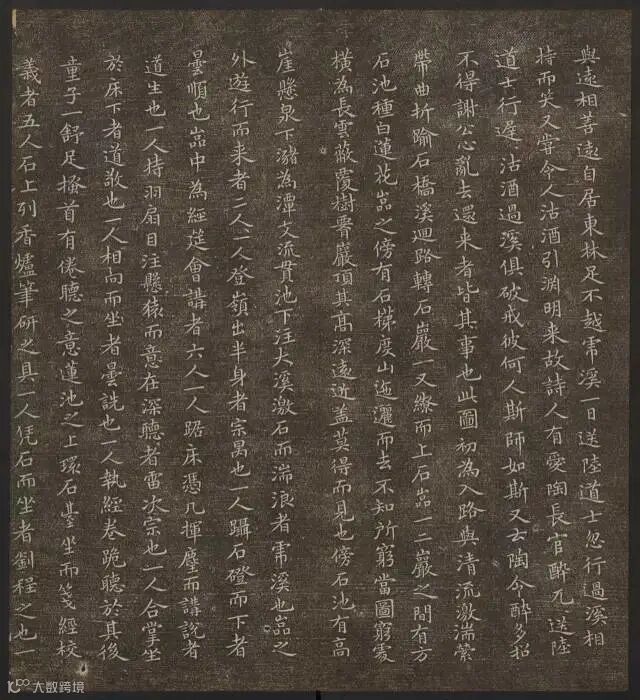 與遠相善遠自居東林足不越虎溪一日送陸道士忽行過溪相
持而笑又嘗令人沽酒引淵明来故詩人有愛陶長官醉兀兀送陸
道士行遲遲沽酒過溪俱破戒彼何人斯師如斯又云陶令醉多招
不得謝公心亂去還来者皆其事也此圖初為入路與清流激湍縈
帶曲折踰石橋溪迴路轉石巖一又繚而上石嵓一二巖之間有方
石池種白蓮花嵓之傍有石梯度山迤邐而去不知所窮當圖窮處
横為長雲蔽覆樹瞀巖頂其髙深遠近盖莫得而見也傍石池有高
崖懸泉下瀦為潭支流貫池下注大溪激石而湍浪者虎溪也嵓之
外遊行而来者二人一人登嶺出半身者宗昺也一人躡石磴而下者
曇順也嵓中為經筵會講者六人一人踞床憑几揮麈而講說者
道生也一人持羽扇目注懸猿而意在深聽者雷次宗也一人合掌坐
於床下者道敬也一人相向而坐者曇詵也一人執經卷跪聽於其後
童子一舒足搔首有倦聽之意蓮池之上環石臺坐而箋經校
義者五人石上列香爐筆研之具一人凭石而坐者劉程之也一
大数跨境